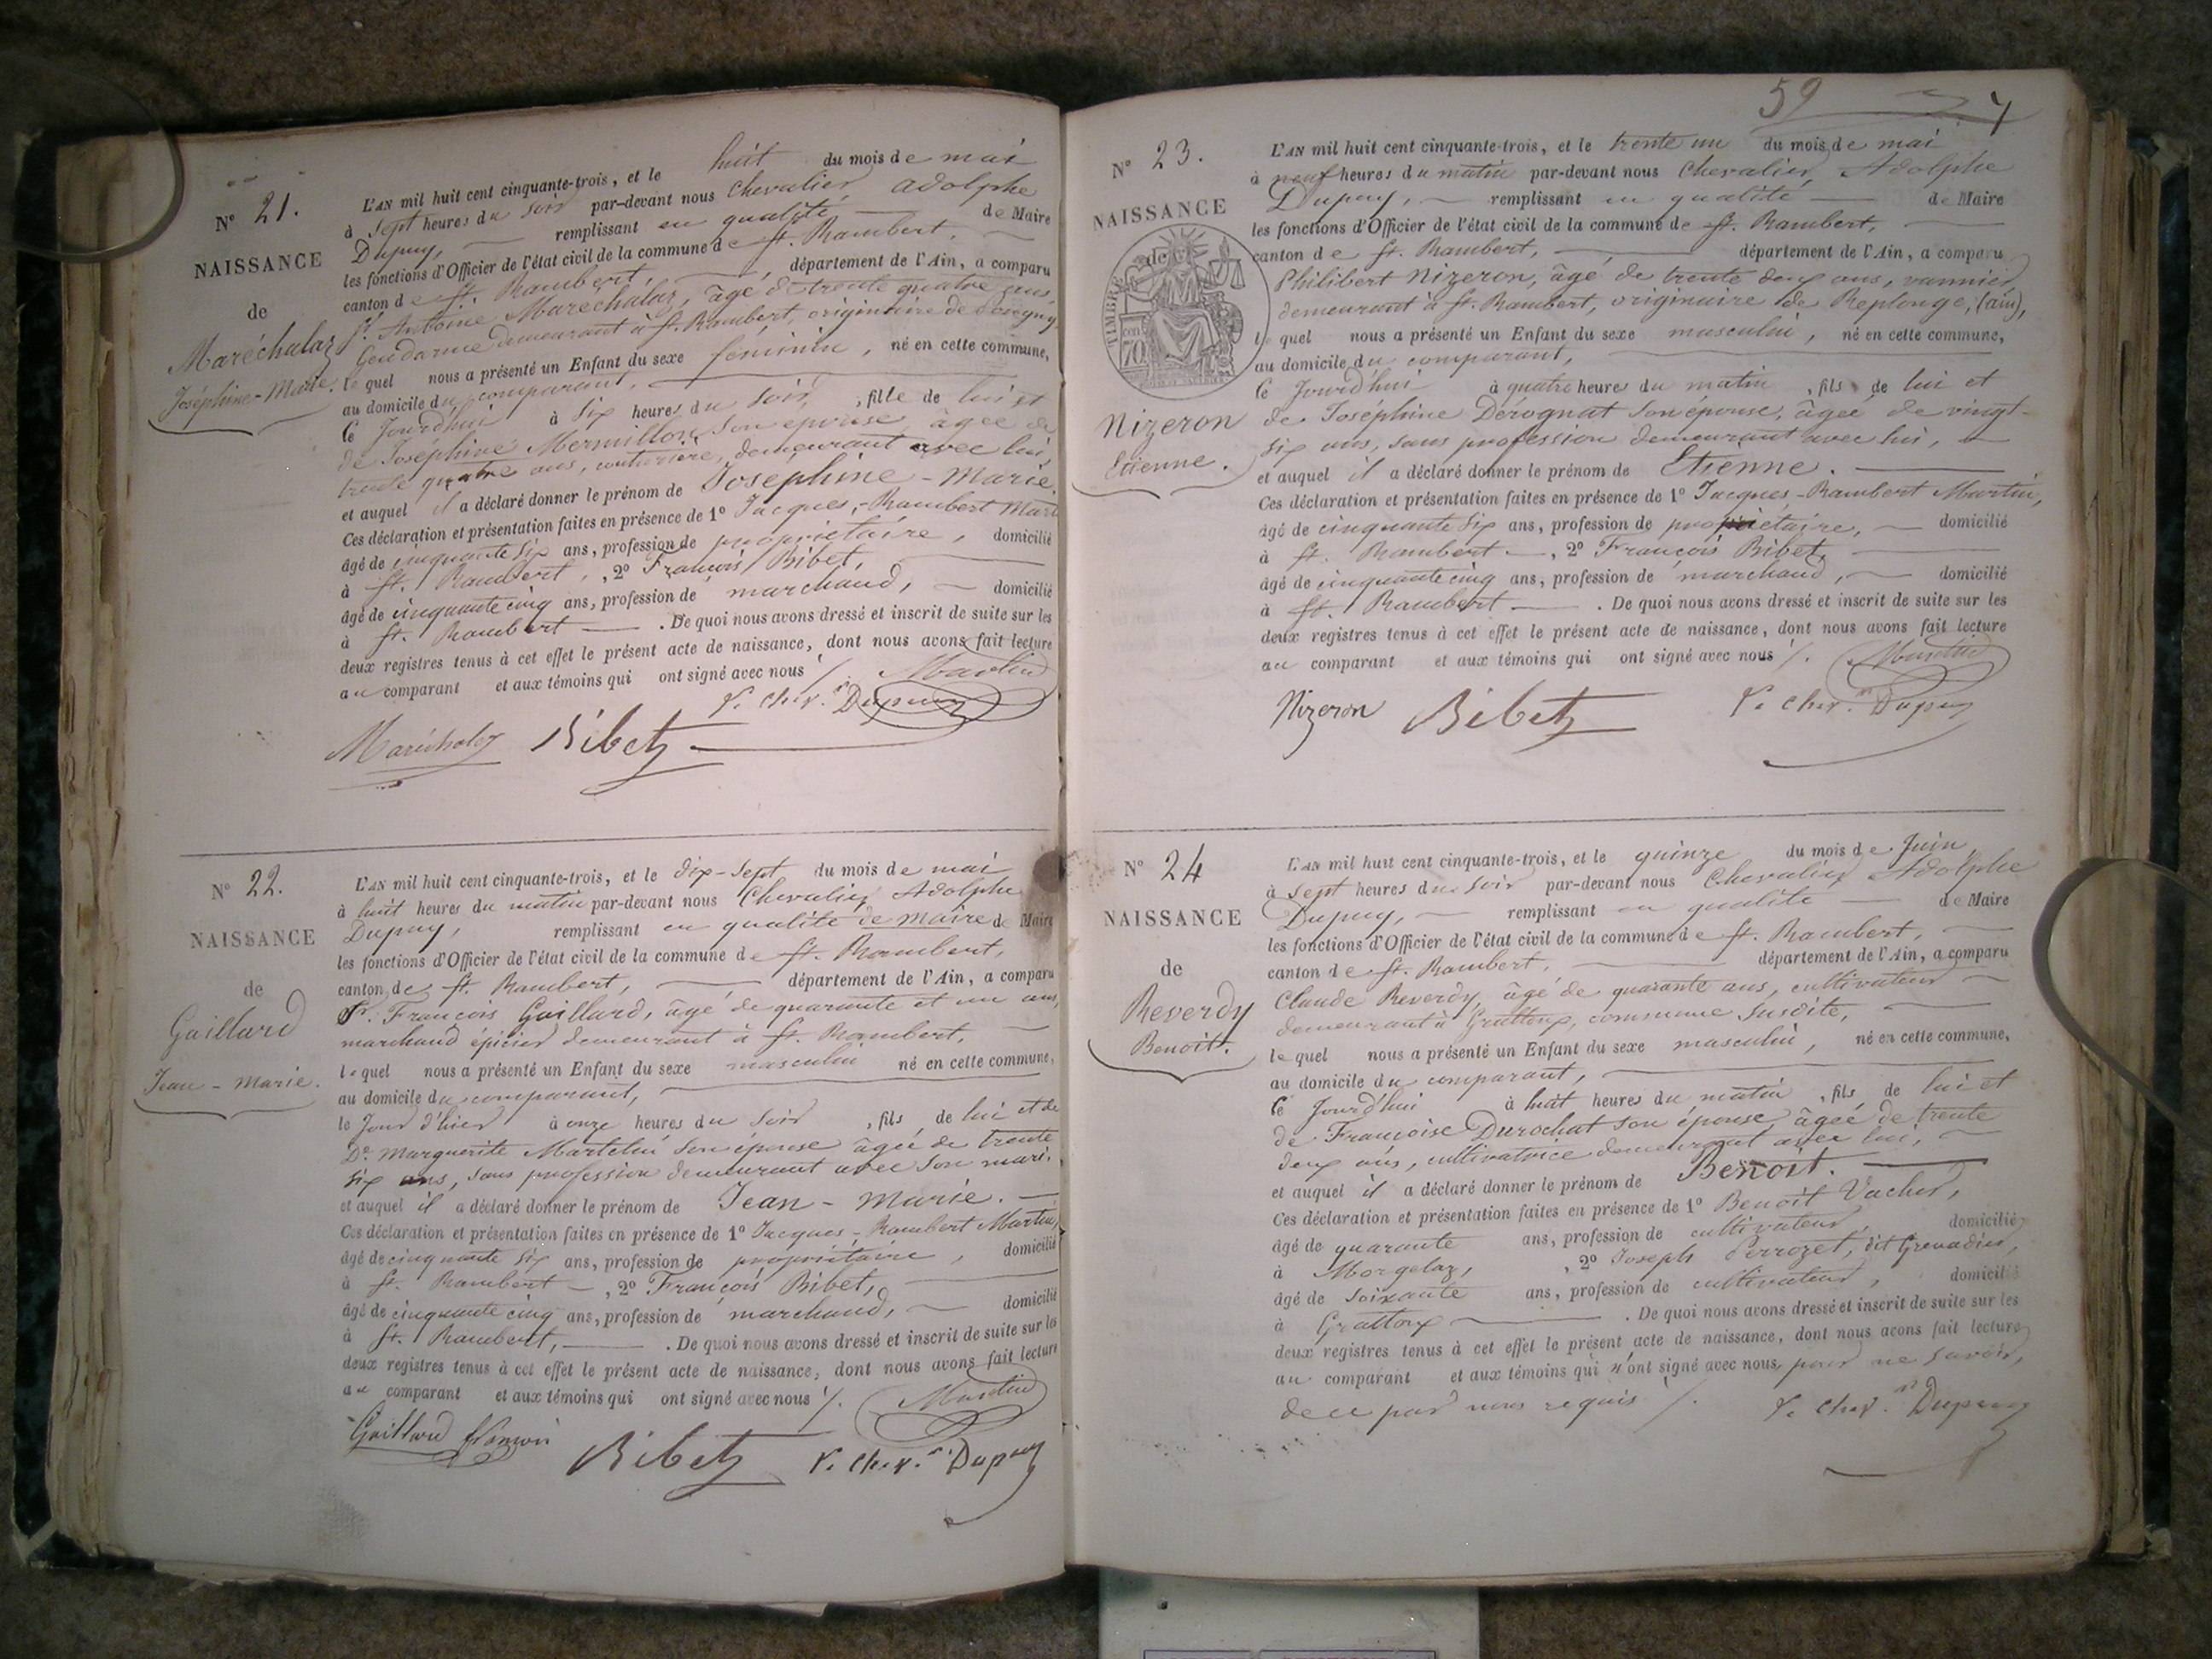 N° 21.
NAISSANCE
de
Maréchalaz
Joséphine-Marie.
L'AN mil huit cent cinquante-trois, et le huit du mois de mai
à sept heures du soir par-devant nous Chevalier Adolphe
Dupuy, remplissant en qualité de Maire
les fonctions d'Officier de l'état civil de la commune de St. Rambert,
canton de St. Rambert, département de l'Ain, a comparu
Sr. Antoine Maréchalaz, âgé de trente quatre ans,
Gendarme demeurant à St. Rambert, originaire de
lequel nous a présenté un Enfant du sexe féminin, né en cette commune,
au domicile du comparant,
Ce Jourd'hui à six heures du soir, fille de lui et
de Joséphine Mermillon, son épouse, âgée de
trente quatre ans, couturière, demeurant avec lui,
et auquel il a déclaré donner le prénom de Joséphine-Marie.
Ces déclaration et présentation faites en présence de 1° Jacques-Rambert Mart
âgé de cinquante six ans, profession de propriétaire, domicilié
à St. Rambert, 2° François Bibet,
âgé de cinquante cinq ans, profession de marchand, domicilié
à St. Rambert. De quoi nous avons dressé et inscrit de suite sur les
deux registres tenus à cet effet le présent acte de naissance, dont nous avons fait lecture
au comparant et aux témoins qui ont signé avec nous /.
Martin
Maréchalaz Bibet V. Cher. Dupuy
N° 22.
NAISSANCE
de
Gaillard
Jean-Marie.
L'AN mil huit cent cinquante-trois, et le dix-sept du mois de mai
à huit heures du matin par-devant nous Chevalier Adolphe
Dupuy, remplissant en qualité de maire de Maire
les fonctions d'Officier de l'état civil de la commune de St. Rambert,
canton de St. Rambert, département de l'Ain, a comparu
Sr. François Gaillard, âgé de quarante et un ans,
marchand épicier demeurant à St. Rambert,
lequel nous a présenté un Enfant du sexe masculin né en cette commune,
au domicile du comparant,
le Jour d'hier à onze heures du soir, fils de lui et de
De. Marguerite Martelin son épouse âgée de trente
six ans, sans profession demeurant avec son mari,
et auquel il a déclaré donner le prénom de Jean-Marie.
Ces déclaration et présentation faites en présence de 1° Jacques-Rambert Martin,
âgé de cinquante six ans, profession de propriétaire, domicilié
à St. Rambert, 2° François Bibet,
âgé de cinquante cinq ans, profession de marchand, domicilié
à St. Rambert. De quoi nous avons dressé et inscrit de suite sur les
deux registres tenus à cet effet le présent acte de naissance, dont nous avons fait lecture
au comparant et aux témoins qui ont signé avec nous /.
Martin
Gaillard françois Bibet V. Cher. Dupuy
59 7
N° 23.
NAISSANCE
de
TIMBRE
cen 70
Nizeron
Etienne.
L'AN mil huit cent cinquante-trois, et le trente un du mois de mai
à neuf heures du matin par-devant nous Chevalier Adolphe
Dupuy, remplissant en qualité de Maire
les fonctions d'Officier de l'état civil de la commune de St. Rambert,
canton de St. Rambert, département de l'Ain, a comparu
Philibert Nizeron, âgé de trente deux ans, vannier,
demeurant à St. Rambert, originaire de Replonge, (ain),
lequel nous a présenté un Enfant du sexe masculin, né en cette commune,
au domicile du comparant,
Ce Jourd'hui à quatre heures du matin, fils de lui et
de Joséphine Dérognat son épouse, âgée de vingt-
six ans, sans profession demeurant avec lui,
et auquel il a déclaré donner le prénom de Etienne.
Ces déclaration et présentation faites en présence de 1° Jacques-Rambert Martin,
âgé de cinquante six ans, profession de propriétaire, domicilié
à St. Rambert, 2° François Bibet,
âgé de cinquante cinq ans, profession de marchand, domicilié
à St. Rambert. De quoi nous avons dressé et inscrit de suite sur les
deux registres tenus à cet effet le présent acte de naissance, dont nous avons fait lecture
au comparant et aux témoins qui ont signé avec nous /.
Martin
Nizeron Bibet V. Cher. Dupuy
N° 24
NAISSANCE
de
Reverdy
Benoit.
L'AN mil huit cent cinquante-trois, et le quinze du mois de Juin
à sept heures du soir par-devant nous Chevalier Adolphe
Dupuy, remplissant en qualité de Maire
les fonctions d'Officier de l'état civil de la commune de St. Rambert,
canton de St. Rambert, département de l'Ain, a comparu
Claude Reverdy, âgé de quarante ans, cultivateur
demeurant à Grattoux, commune susdite,
lequel nous a présenté un Enfant du sexe masculin, né en cette commune,
au domicile du comparant,
Ce Jourd'hui à huit heures du matin, fils de lui et
de Françoise Durochat son épouse, âgée de trente
deux ans, cultivatrice demeurant avec lui,
et auquel il a déclaré donner le prénom de Benoit.
Ces déclaration et présentation faites en présence de 1° Benoit Vacher,
âgé de quarante ans, profession de cultivateur domicilié
à Morgelaz, 2° Joseph Perrozet, dit Grenadier,
âgé de soixante ans, profession de cultivateur, domicilié
à Grattoux. De quoi nous avons dressé et inscrit de suite sur les
deux registres tenus à cet effet le présent acte de naissance, dont nous avons fait lecture
au comparant et aux témoins qui n'ont signé avec nous, pour ne savoir,
de ce par nous requis /.
V. Cher. Dupuy